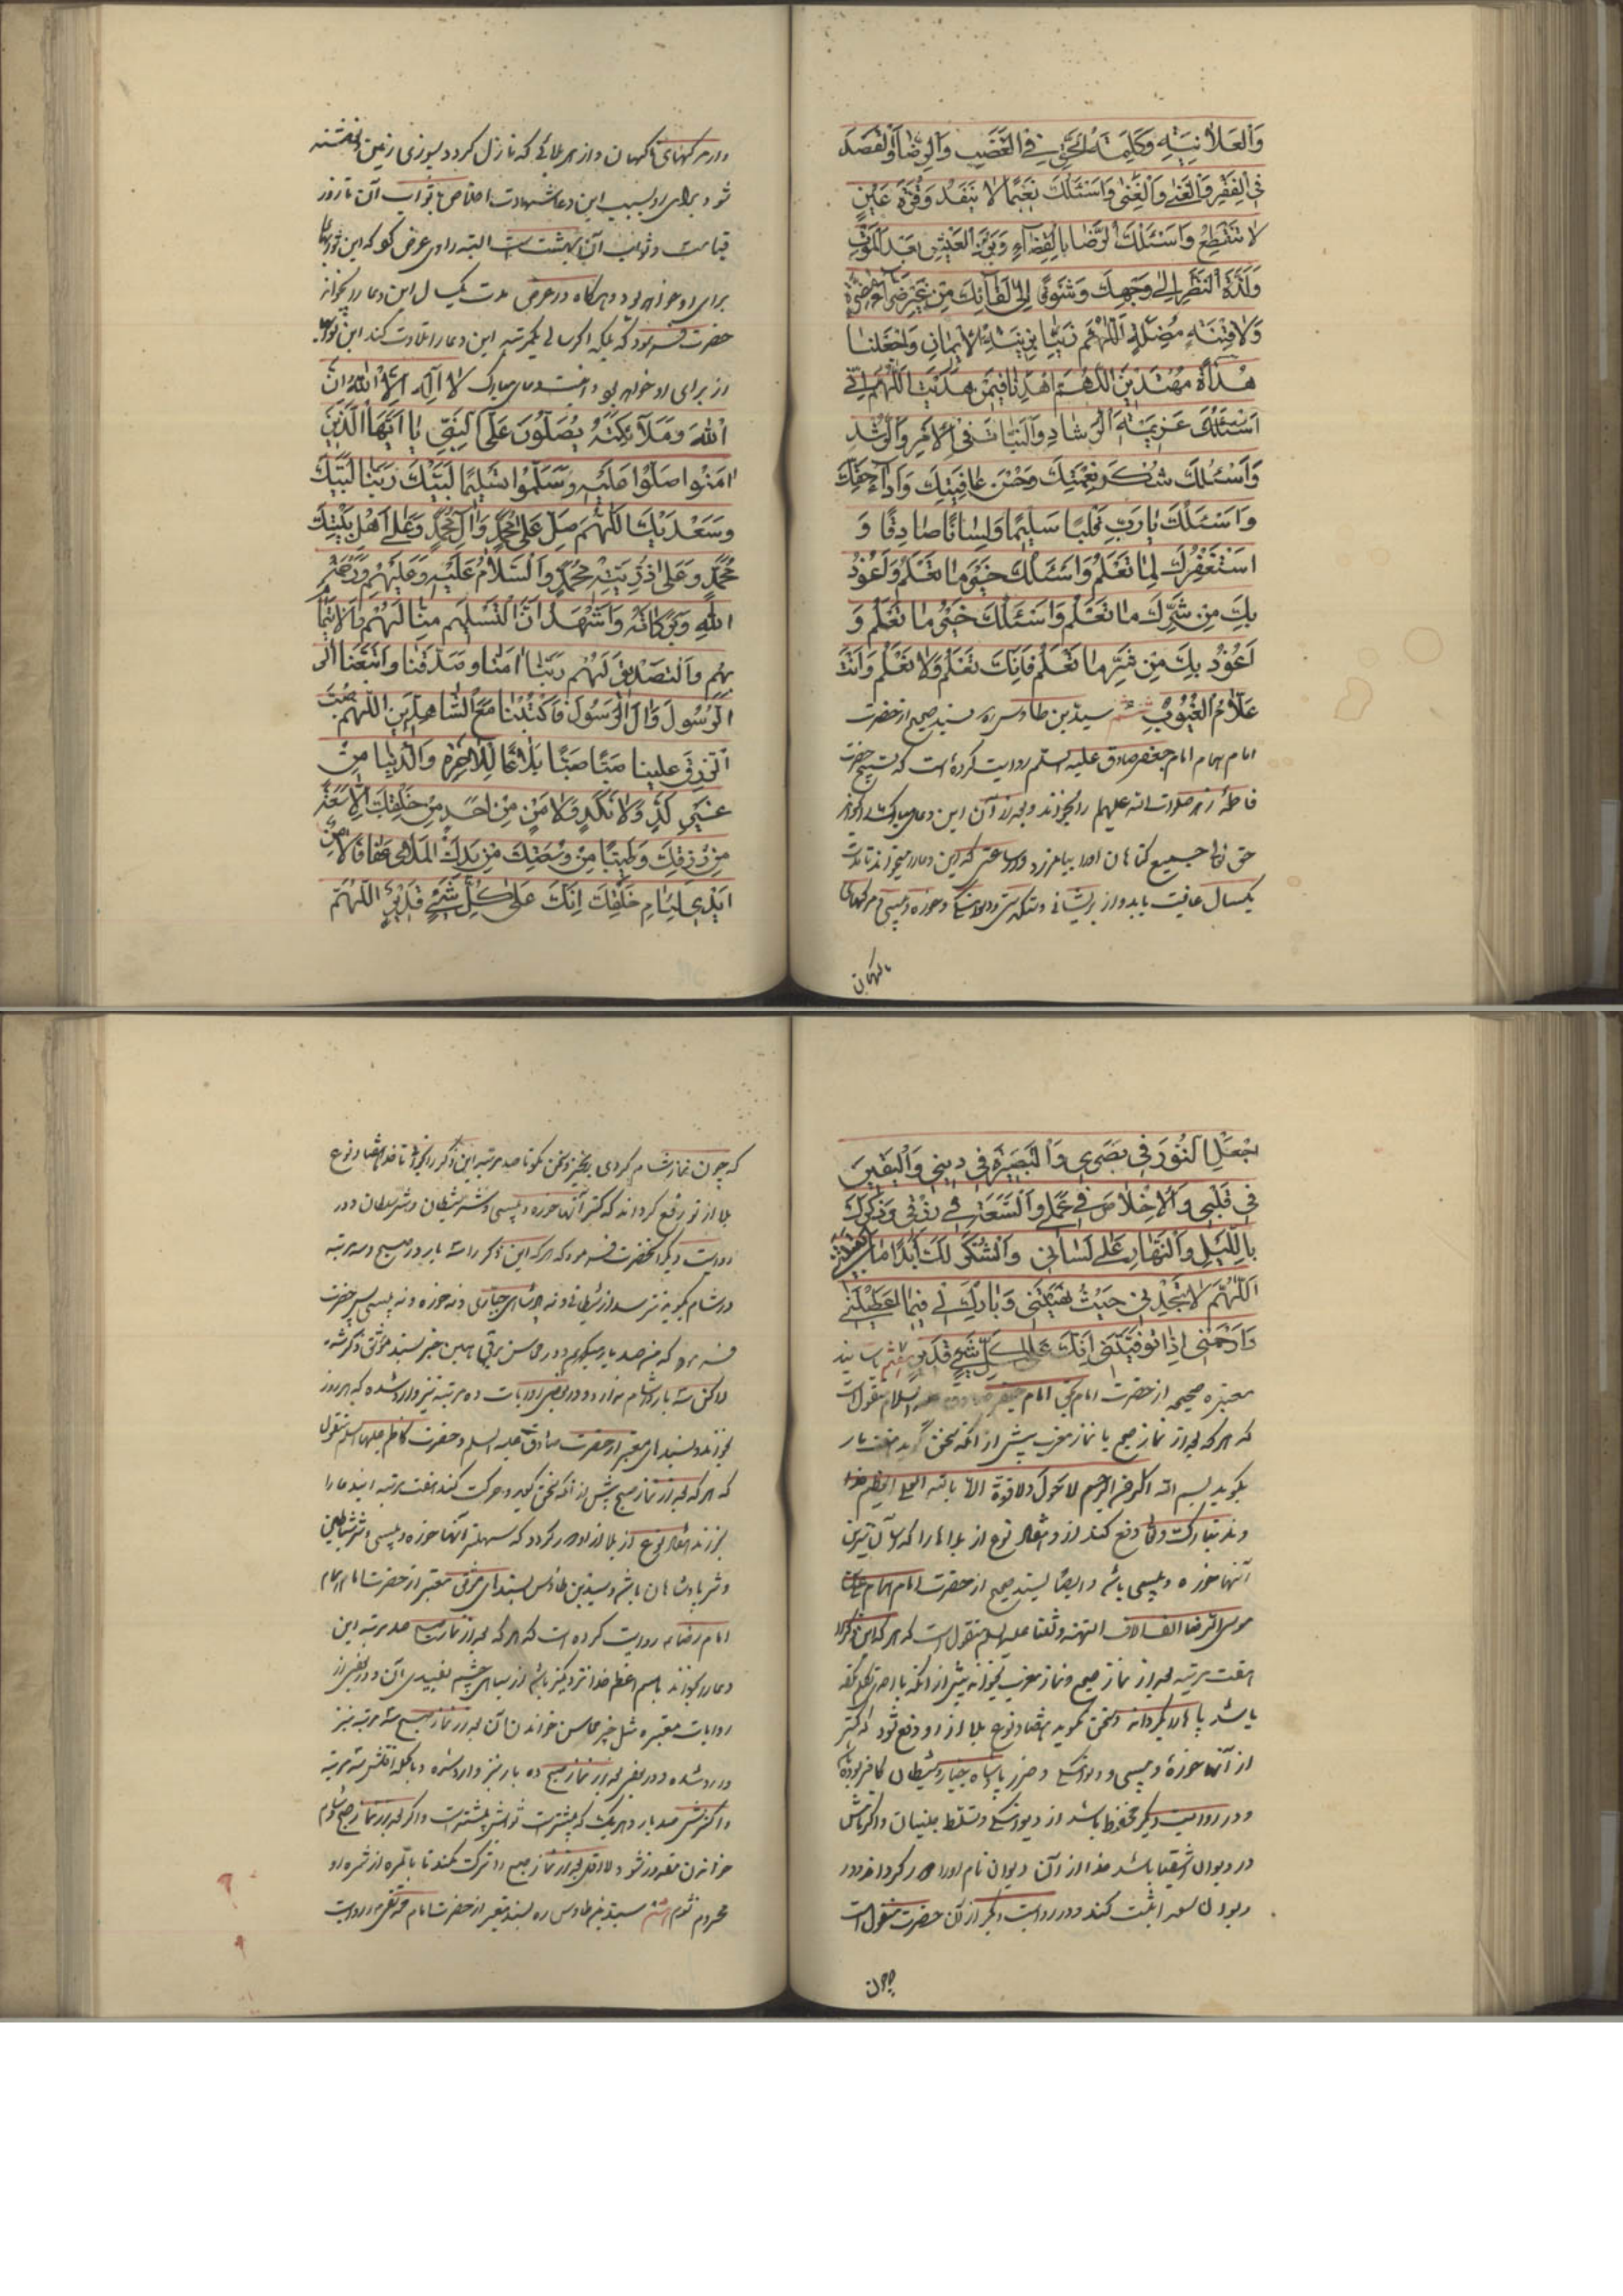 وَالعَلانِيَةِ وَكَلِمَةَ الحَقِّ فِي الغَضَبِ وَالرِّضا وَالقَصدَ
فِي الفَقرِ وَالغِنى وَاَسئَلُكَ نَعيمًا لا يَنفَدُ وَقُرَّةَ عَينٍ
لا تَنقَطِعُ وَاَسئَلُكَ الرِّضا بِالقَضآءِ وَبَردَ العَيشِ بَعدَ المَوتِ
وَلَذَّةَ النَّظَرِ اِلى وَجهِكَ وَشَوقًا اِلى لِقآئِكَ مِن غَيرِ ضَرّآءَ مُضِرَّةٍ
وَلا فِتنَةٍ مُضِلَّةٍ اَللّهُمَّ زَيِّنّا بِزينَةِ الايمانِ وَاجعَلنا
هُداةً مُهتَدينَ اَللّهُمَّ اهدِنا فيمَن هَدَيتَ اَللّهُمَّ اِنّي
اَسئَلُكَ عَزيمَةَ الرَّشادِ وَالثَّباتَ فِي الاَمرِ وَالرُّشدِ
وَاَسئَلُكَ شُكرَ نِعمَتِكَ وَحُسنَ عافِيَتِكَ وَاَدآءَ حَقِّكَ
وَاَسئَلُكَ يا رَبِّ قَلبًا سَليمًا وَلِسانًا صادِقًا وَ
اَستَغفِرُكَ لِما تَعلَمُ وَاَسئَلُكَ خَيرَ ما تَعلَمُ وَاَعُوذُ
بِكَ مِن شَرِّ ما تَعلَمُ وَاَسئَلُكَ خَيرَ ما تَعلَمُ وَ
اَعُوذُ بِكَ مِن شَرِّ ما تَعلَمُ فَاِنَّكَ تَعلَمُ وَلا نَعلَمُ وَاَنتَ
عَلّامُ الغُيُوبِ ششم سید بن طاوس ره بسند صحیح از حضرت
امام همام امام جعفر صادق علیه السلم روایت کرده است که تسبیح حضرت
فاطمهٔ زهرا صلوات الله علیهم را بخواند و بعد از آن این دعای مبارک را بخواند
حق تعالی جمیع گناهان او را بیامرزد و در ساعتی که این دعا را میخواند تا مدت
یکسال عافیت یابد و از پریشانی و تنگدستی و دیوانگی و خوره و پیسی و مرگهای
ناگهان
و از مرگهای ناگهان و از هر بلائی که نازل گردد بسوزی زمین
شود برای او بسبب این دعا شهادت اخلاص با ثواب آن تا روز
قیامت و ثواب آن بهشت است البته راوی عرض کرد که این ثوابها
برای او خواهد بود هرگاه در عرض مدت یکسال این دعا را بخواند
حضرت فرمود که بلکه اگر سالی یکمرتبه این دعا را تلاوت کند این ثوابها
از برای او خواهد بود و اینست دعای مبارک لا اِلهَ اِلَّا اللهُ اِنَّ
اللهَ وَمَلآئِكَتَهُ يُصَلُّونَ عَلَى النَّبِيِّ يا اَيُّهَا الَّذينَ
امَنُوا صَلُّوا عَلَيهِ وَسَلِّمُوا تَسليمًا لَبَّيكَ رَبَّنا لَبَّيكَ
وَسَعدَيكَ اَللّهُمَّ صَلِّ عَلى مُحَمَّدٍ وَالِ مُحَمَّدٍ وَعَلى اَهلِ بَيتِ
مُحَمَّدٍ وَعَلى ذُرِّيَّةِ مُحَمَّدٍ وَالسَّلامُ عَلَيهِ وَعَلَيهِم وَرَحمَةُ
اللهِ وَبَرَكاتُهُ وَاَشهَدُ اَنَّ التَّسليمَ مِنّا لَهُم وَالايتِمامَ
بِهِم وَالتَّصديقَ لَهُم رَبَّنا امَنّا وَصَدَّقنا وَاتَّبَعنَا
الرَّسُولَ وَالَ الرَّسُولِ فَاكتُبنا مَعَ الشّاهِدينَ اَللّهُمَّ صُبَّ
الرِّزقَ عَلَينا صَبًّا صَبًّا بَلاغًا لِلاخِرَةِ وَالدُّنيا مِن
غَيرِ كَدٍّ وَلا نَكَدٍ وَلا مَنٍّ مِن اَحَدٍ مِن خَلقِكَ اِلّا سَعَةً
مِن رِزقِكَ وَطَيِّبًا مِن وُسعِكَ مِن يَدِكَ المَلاى عَفافًا لا مِن
اَيدي لِئامِ خَلقِكَ اِنَّكَ عَلى كُلِّ شَيءٍ قَديرٌ اَللّهُمَّ
اجعَلِ النُّورَ في بَصَري وَالبَصيرَةَ في ديني وَاليَقينَ
في قَلبي وَالاِخلاصَ في عَمَلي وَالسَّعَةَ في رِزقي وَذِكرَكَ
بِاللَّيلِ وَالنَّهارِ عَلى لِساني وَالشُّكرَ لَكَ اَبَدًا ما اَبقَيتَني
اَللّهُمَّ لا تَجِدني حَيثُ نَهَيتَني وَبارِك لي فيما اَعطَيتَني
وَارحَمني اِذا تَوَفَّيتَني اِنَّكَ عَلى كُلِّ شَيءٍ قَديرٌ هفتم باسانید
معتبره صحیحه از حضرت امام بحق امام جعفر صادق علیه السلام منقولست
که هر که بعد از نماز صبح یا نماز مغرب پیش از آنکه سخن گوید هفت بار
بگوید بسم الله الرحمن الرحیم لا حول ولا قوة الا بالله العلی العظیم خدا
وند تبارک و تعالی دفع کند از و هفتاد نوع از بلاها را که سهل ترین
آنها خوره و پیسی باشد و ایضا بسند صحیح از حضرت امام همام علی بن
موسی الرضا الف الاف التحیة و الثنا علیه السلم منقول است که هر که این ذکر را
هفت مرتبه بعد از نماز صبح و نماز مغرب بخواند پیش از آنکه با احدی تکلم کرده
باشد یا پا را بگرداند و سخن گوید هفتاد نوع بلا از او دفع شود که کمتر
از آنها خورهٔ و پیسی و دیوانگی و ضرر پادشاه جبار و شیطان کافر بوده
و در روایت دیگر محفوظ باشد از دیوانگی و تسلط جنیان و اگر نامش
در دیوان اشقیا باشد خدا از آن دیوان نام او را محو گرداند و در
دیوان سعدا ثبت کند و در روایت دیگر از آن حضرت منقول است
چون
که چون نماز شام کردی برمخیز و سخن مگو تا صد مرتبه این ذکر را بخوانی تا خدا هفتاد نوع
بلا از تو رفع گرداند که کمتر آنها خوره و پیسی و شر شیطان و شر سلطان و در
روایت دیگر آنحضرت فرمود که هر که این ذکر را سه بار در صبح و سه مرتبه
در شام بگوید نترسد از شیطانی و نه پادشاه جباری و نه خوره و نه پیسی پس حضرت
فرمود که من صد بار میگویم و در محاسن برقی همین خبر بسند موثق ذکر شده
که هر که بعد از نماز صبح پیش از آنکه سخن گوید و حرکت کند هفت مرتبه این دعا را
و شر پادشاهان باشد و سید بن طاوس بسندهای موثق معتبر از حضرت امام همام
امام رضا ع روایت کرده است که هر که بعد از نماز صبح صد مرتبه این
دعا را بخواند باسم اعظم خدا نزدیکتر باشد از سیاهی چشم بسفیدی آن و در بعضی از
روایات معتبره مثل خبر محاسن خواندن آن بعد از نماز صبح سه مرتبه نیز
وارد شده و در بعضی بعد از نماز صبح ده بار نیز وارد شده و بالجمله اقلش سه مرتبه
و اکثرش صد بار و هر یک که بیشتر است ثوابش بیشتر است و اگر بعد از نماز صبح و شام
خواندن مقدور نشود لااقل بعد از نماز صبح را ترک نکند تا بالمره از ثمرهٔ او
محروم نشود هشتم سید بن طاوس ره بسند معتبر از حضرت امام محمد تقی ع روایت